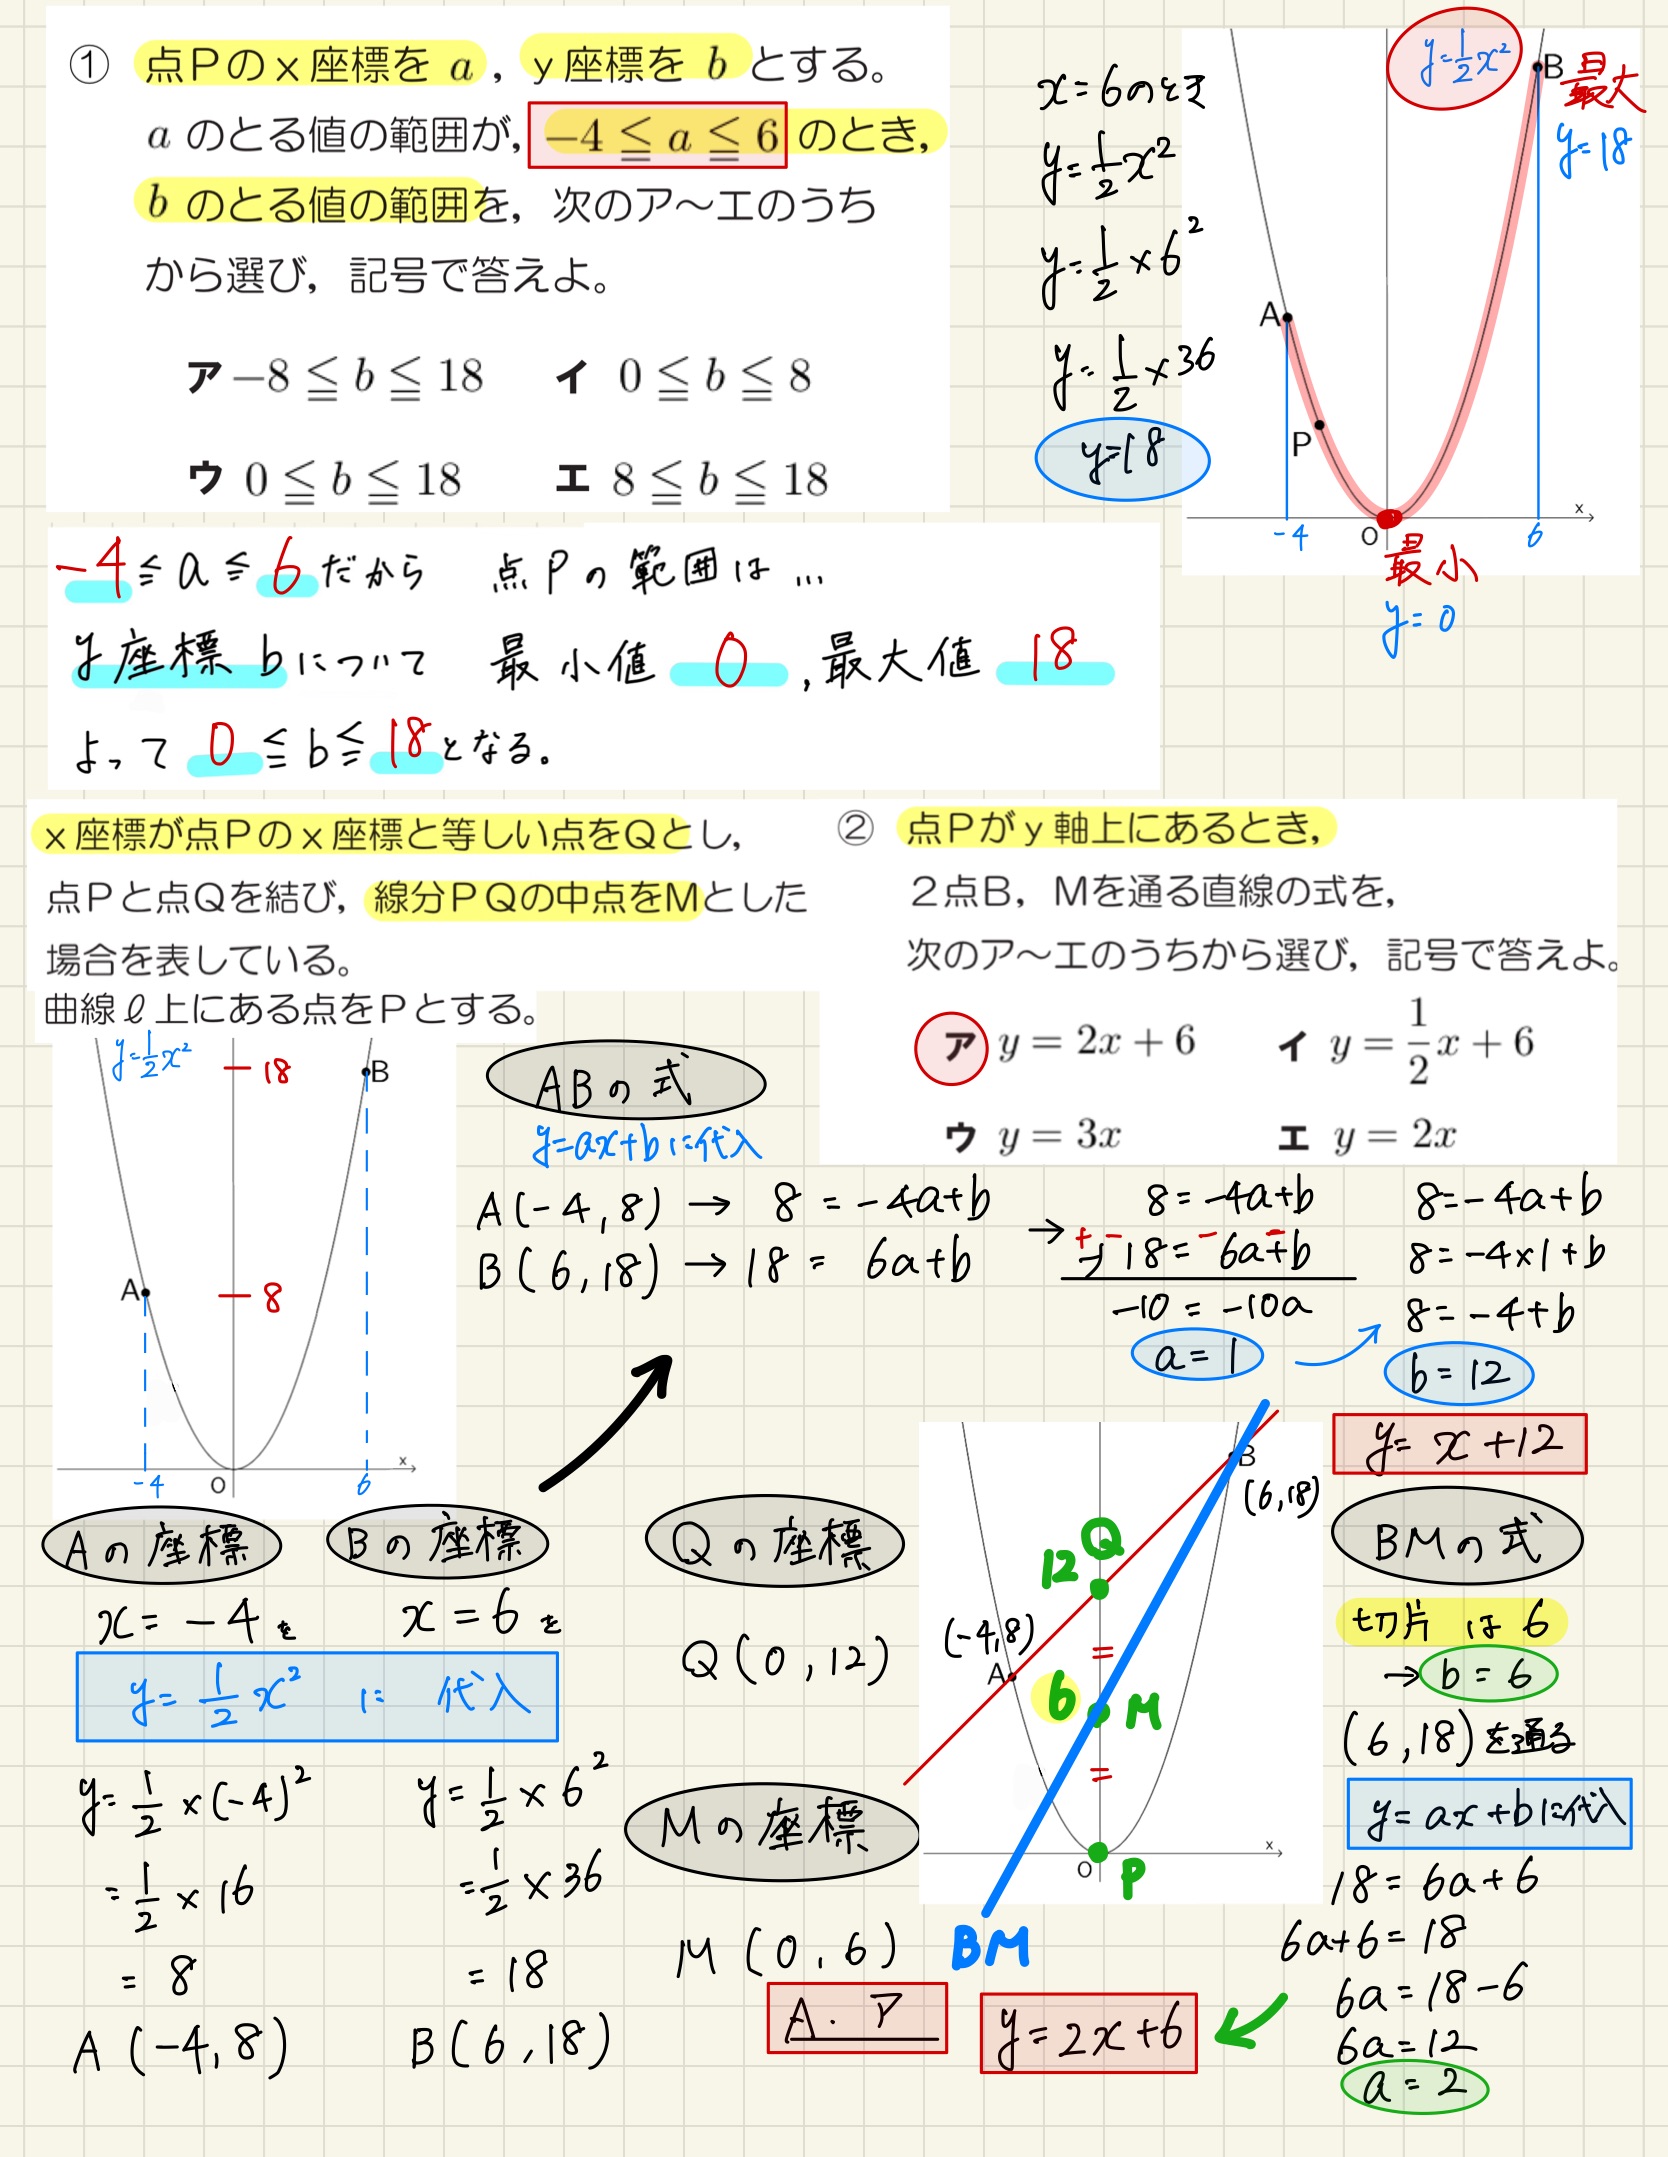 ① 点Pのx座標を a，y座標を b とする。
a のとる値の範囲が，−4 ≦ a ≦ 6 のとき，
b のとる値の範囲を，次のア～エのうち
から選び，記号で答えよ。
ア −8 ≦ b ≦ 18 イ 0 ≦ b ≦ 8
ウ 0 ≦ b ≦ 18 エ 8 ≦ b ≦ 18
x=6のとき
y=1/2x²
y=1/2×6²
y=1/2×36
y=18
y=1/2x²
B 最大
y=18
A
P
-4 O 6 x
最小
y=0
-4≦a≦6だから 点Pの範囲は…
y座標bについて 最小値 0，最大値 18
よって 0≦b≦18となる。
x座標が点Pのx座標と等しい点をQとし，
点Pと点Qを結び，線分PQの中点をMとした
場合を表している。
曲線ℓ上にある点をPとする。
② 点Pがy軸上にあるとき，
2点B，Mを通る直線の式を，
次のア～エのうちから選び，記号で答えよ。
ア y = 2x + 6 イ y = 1/2x + 6
ウ y = 3x エ y = 2x
y=1/2x²
18
B
A
8
-4 O 6 x
ABの式
y=ax+bに代入
A(-4,8) → 8 = -4a+b
B(6,18) → 18 = 6a+b
→
8=-4a+b
-) 18= 6a+b
+ - - -
-10 = -10a
a=1
8=-4a+b
8=-4×1+b
8=-4+b
b=12
y=x+12
Aの座標
x=-4を
Bの座標
x=6を
y=1/2x² に 代入
y=1/2×(-4)²
=1/2×16
=8
A(-4,8)
y=1/2×6²
=1/2×36
=18
B(6,18)
Qの座標
Q(0,12)
Mの座標
M(0,6)
A. ア
B
(6,18)
Q
12
(-4,8)
A
=
6 M
=
O P x
BM
BMの式
切片は6
→b=6
(6,18)を通る
y=ax+bに代入
18=6a+6
6a+6=18
6a=18-6
6a=12
a=2
y=2x+6